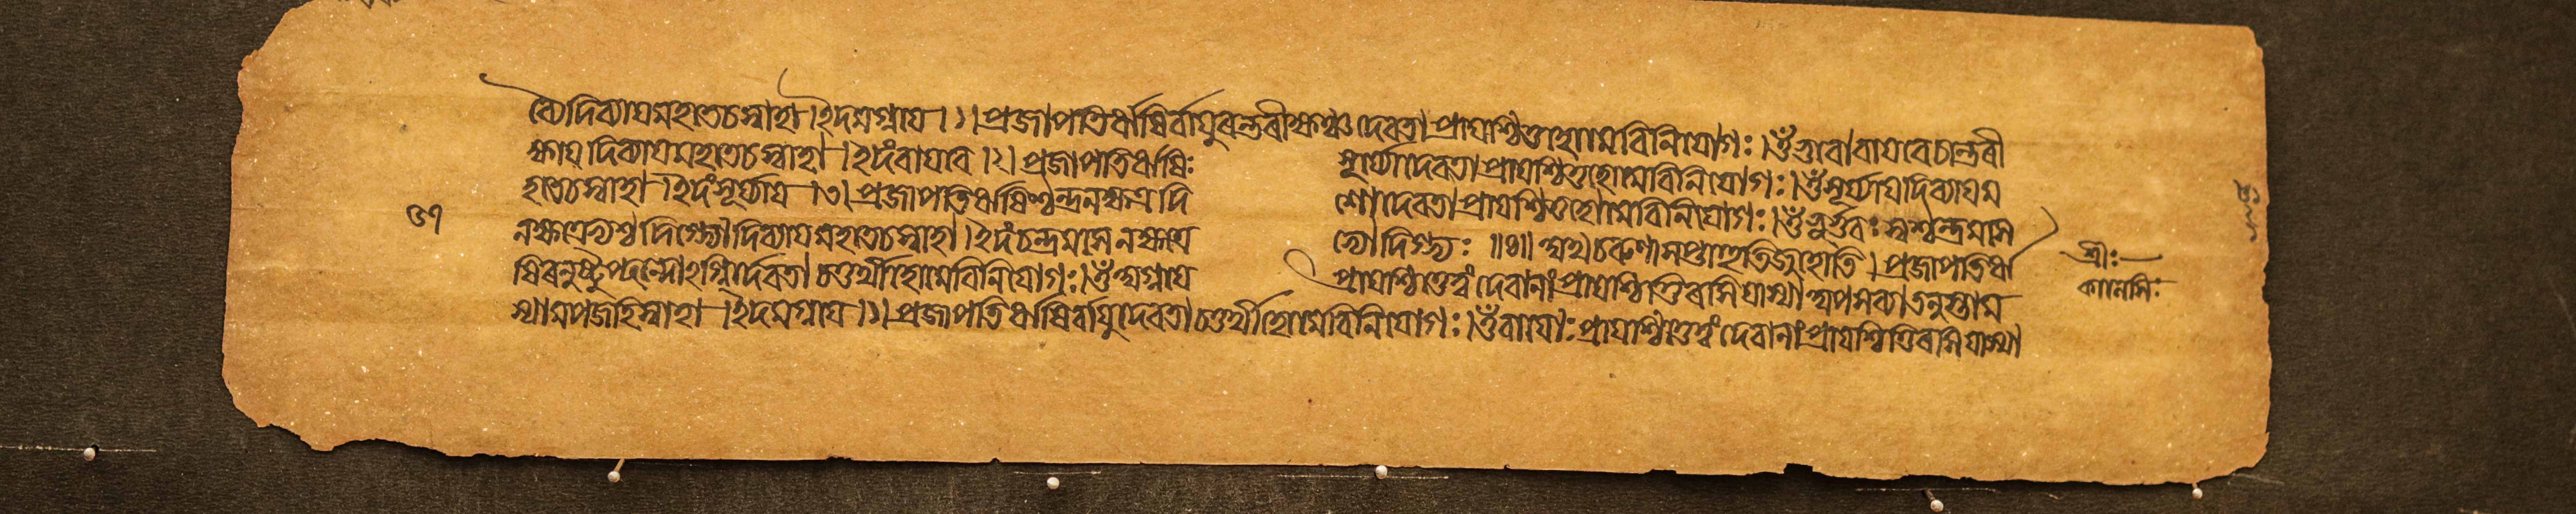 ব্যৈদিব্যায়মহতেচস্বাহা।ইদমগ্নয়ে।১।প্রজাপতিৰ্ঋষিৰ্বায়ুৰন্তৰীক্ষশ্চদেবতা প্ৰায়শ্চিত্তহোমেবিনিয়োগঃ।ওঁভুবোবায়বেচান্তৰী
ক্ষায় দিব্যায়মহতেচস্বাহা।ইদংবায়বে।২।প্রজাপতিৰ্ঋষিঃ সূৰ্য্যোদেবতা প্ৰায়শ্চিত্তহোমেবিনিয়োগঃ।ওঁসূৰ্য্যায়দিব্যায়ম
হতেচস্বাহা।ইদংসূৰ্য্যায়।৩।প্রজাপতিৰ্ঋষিশ্চন্দ্ৰনক্ষত্ৰ দি শোদেবতা প্ৰায়শ্চিত্তহোমেবিনিয়োগঃ।ওঁভূৰ্ভুবঃস্বশ্চন্দ্ৰমসে
নক্ষত্ৰেভ্যশ্চ দিগ্ভ্যোদিব্যায়মহতেচস্বাহা।ইদংচন্দ্ৰমসে নক্ষত্ৰে ভ্যোদিগ্ভ্যঃ ॥৪॥ অথচৰুণাসপ্তাহুতিৰ্জুহোতি।প্রজাপতিৰ্ঋ
ষিৰনুষ্টুপ্ছন্দোঽগ্নিৰ্দেবতা চতুৰ্থীহোমেবিনিয়োগঃ।ওঁঅগ্নয়ে প্ৰায়শ্চিত্তেত্বং দেবানাং প্ৰায়শ্চিত্তিৰসিযাস্যা
স্যামপজহিস্বাহা।ইদমগ্নয়ে।১।প্রজাপতিৰ্ঋষিৰ্বায়ুদেবতা চতুৰ্থীহোমেবিনিয়োগঃ।ওঁবায়োঃপ্ৰায়শ্চিত্তেত্বং দেবানাং প্ৰায়শ্চিত্তিৰসিযাস্যা
শ্ৰীঃ